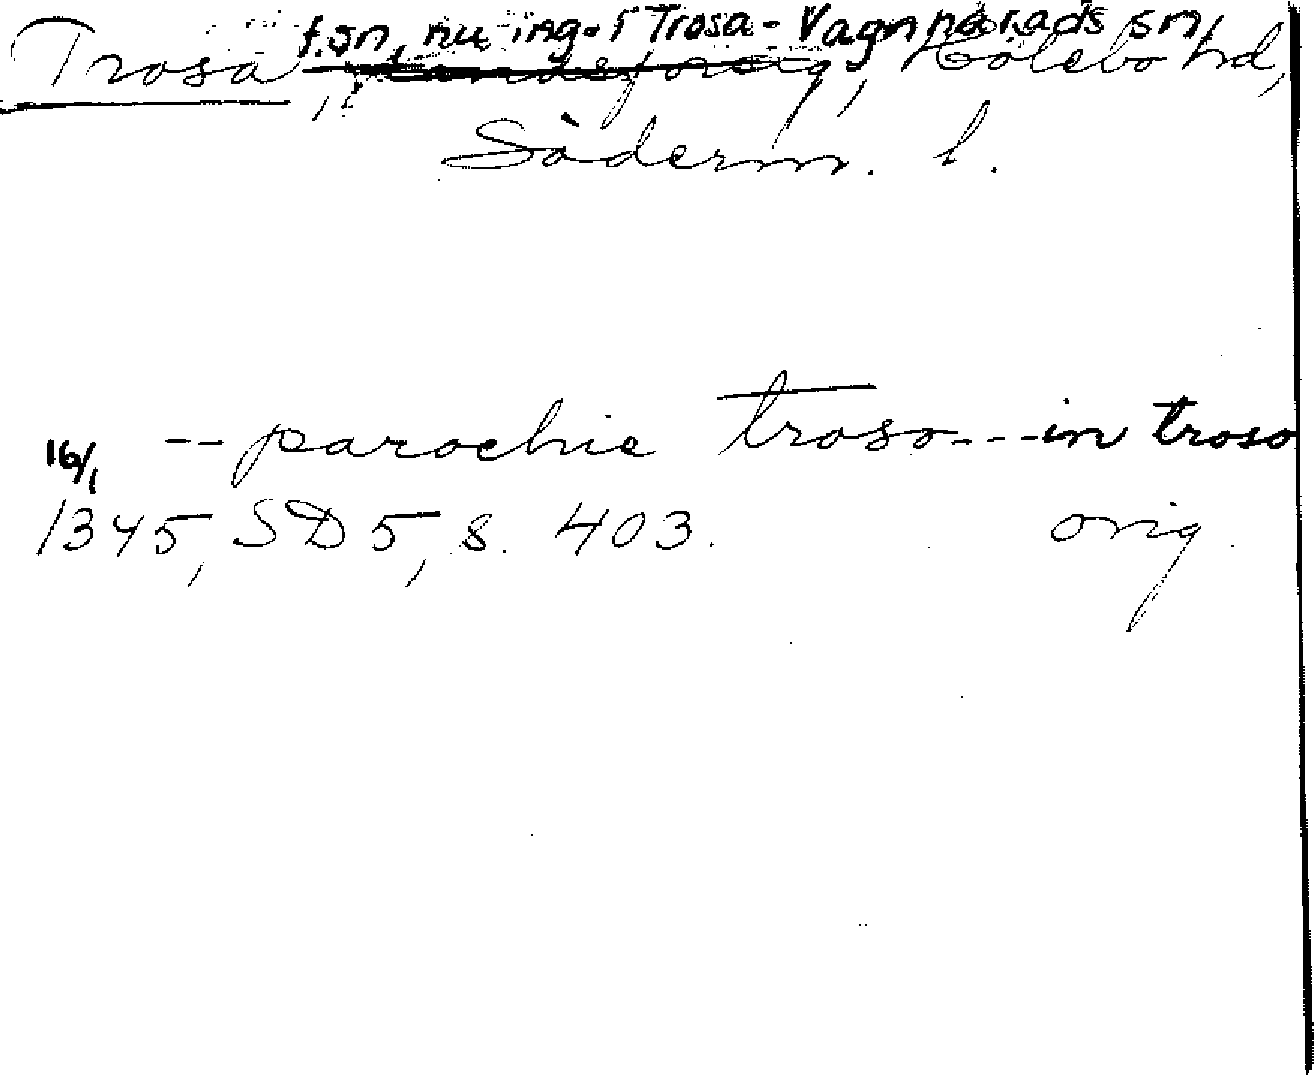 f.sn, nu ing. i Trosa-Vagnhärads sn,
Trosa, landsförsg, Hölebo hd,
Söderm. l.
-- parochie troso --- in troso
16/1
1345, SD 5, s. 403. orig.